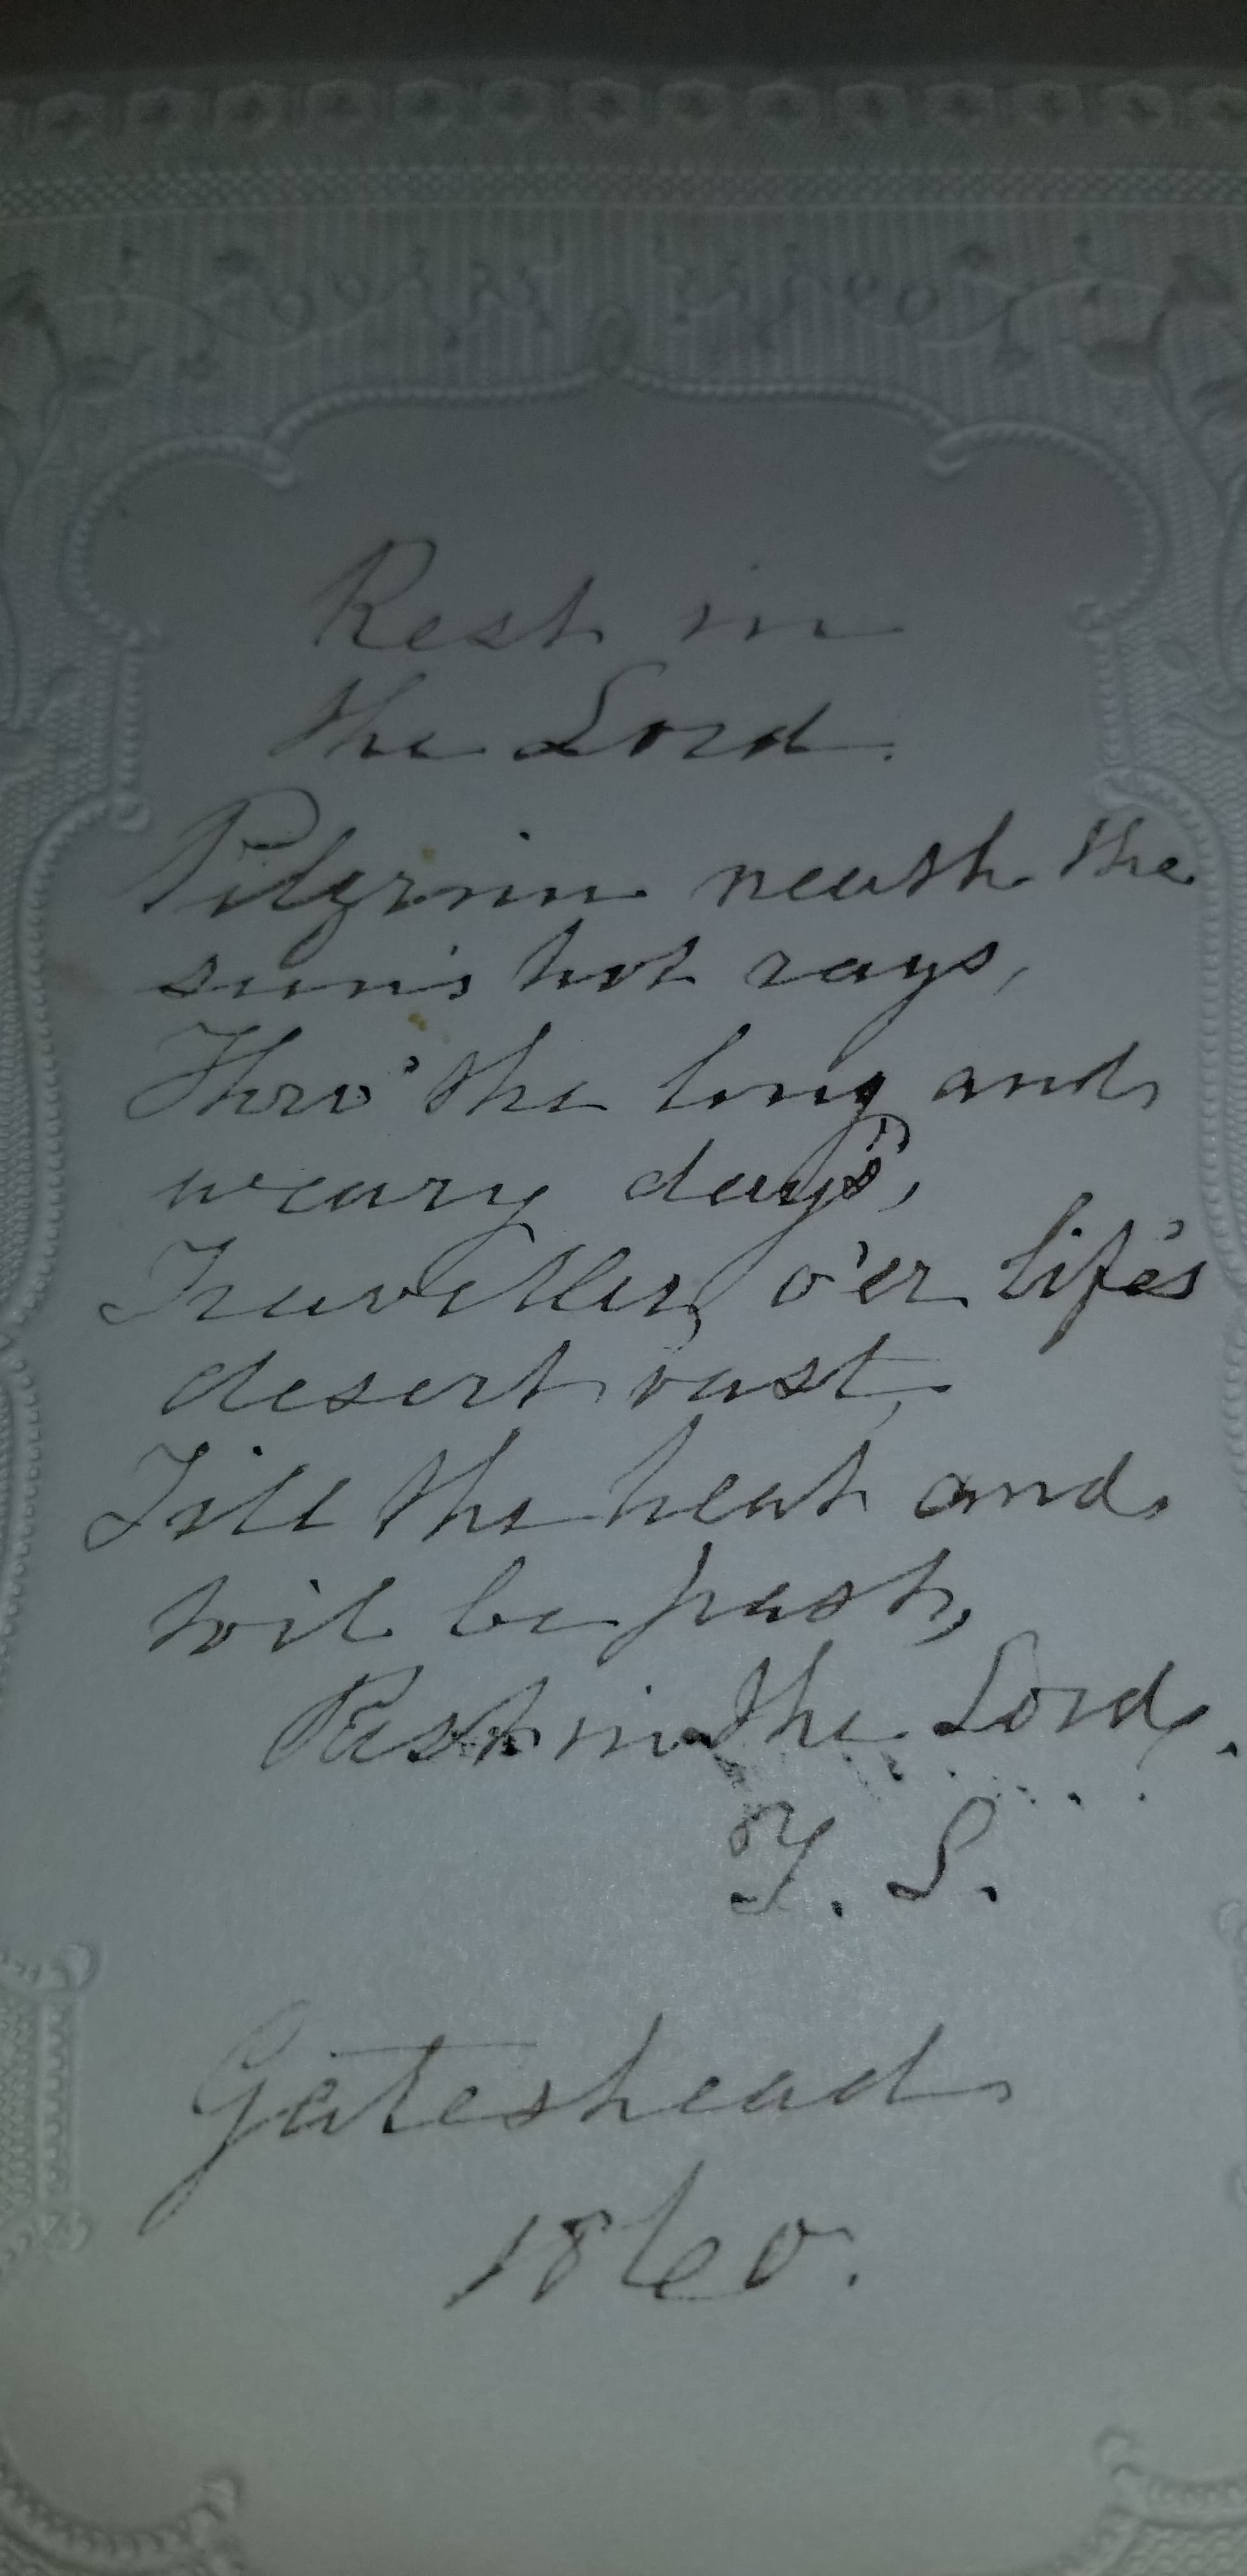 Rest in
the Lord.
Pilgrim neath the
sun's hot rays,
Thro' the long and
weary days,
Traveller, o'er life's
desert vast,
Till the heat and
toil be past,
Rest in the Lord.
S.
Gateshead
1860.